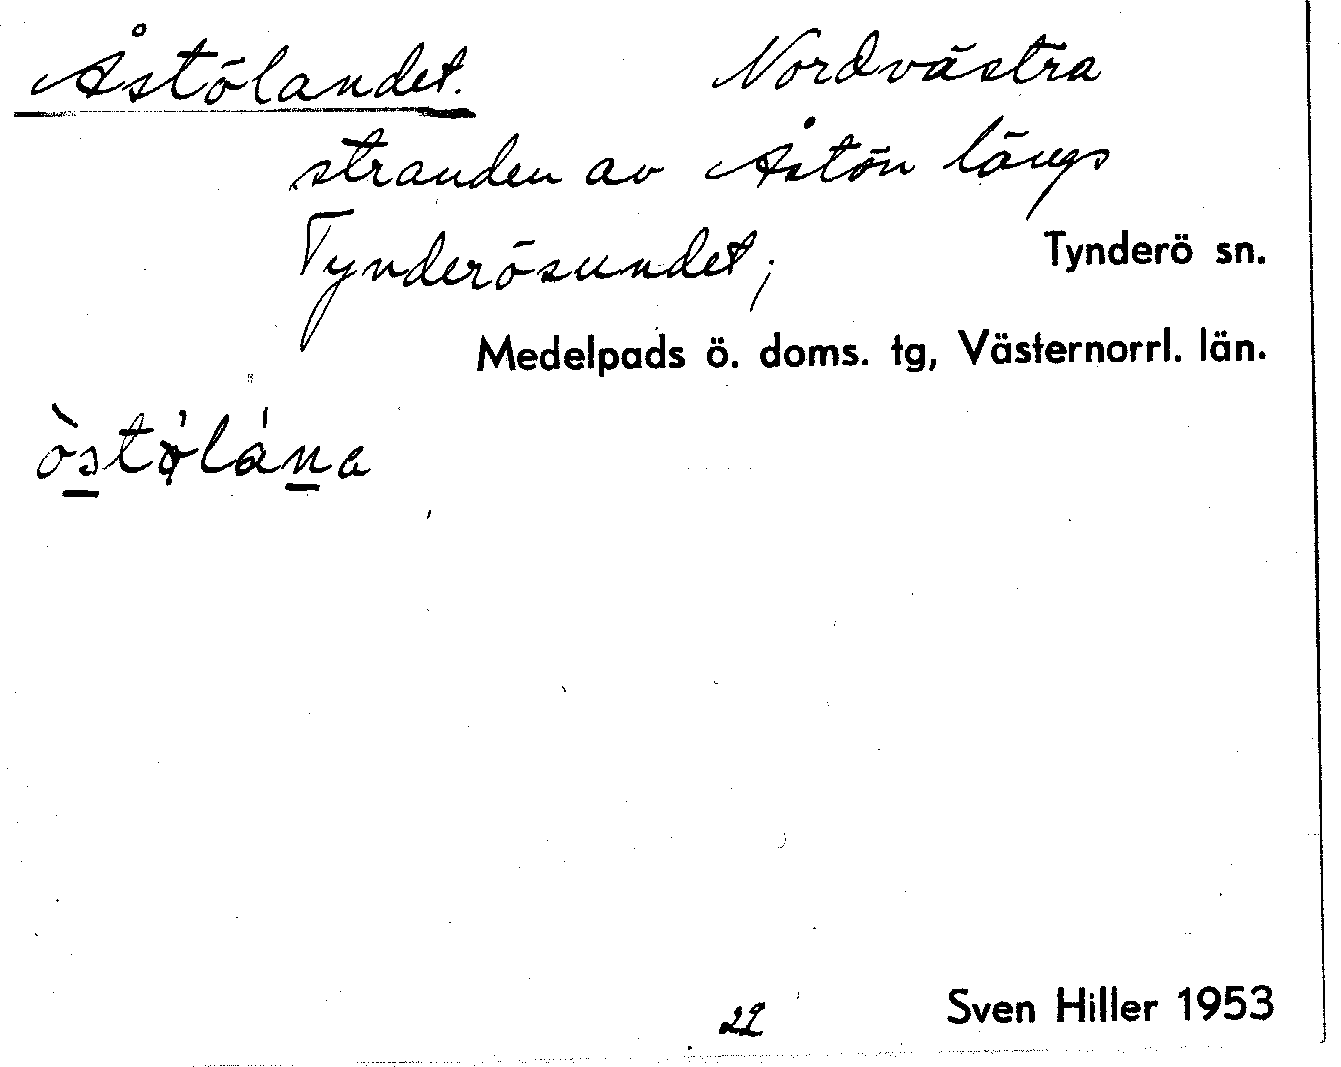 Åstölandet. Nordvästra
stranden av Åstön längs
Tynderösundet; Tynderö sn.
Medelpads ö. doms. tg, Västernorrl. län.
22 Sven Hiller 1953